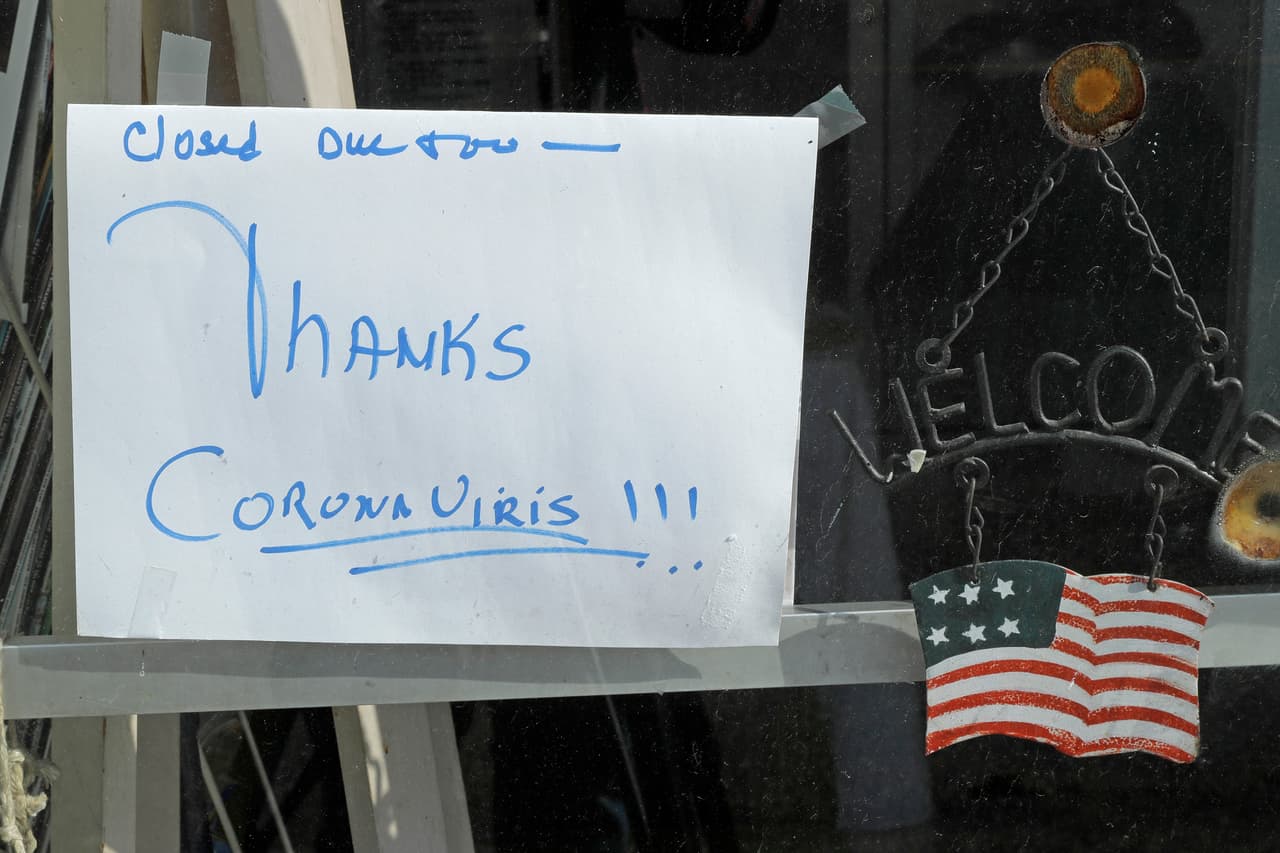 Closed Due too —
THANKS
CORONA VIRIS !!!
WELCOME